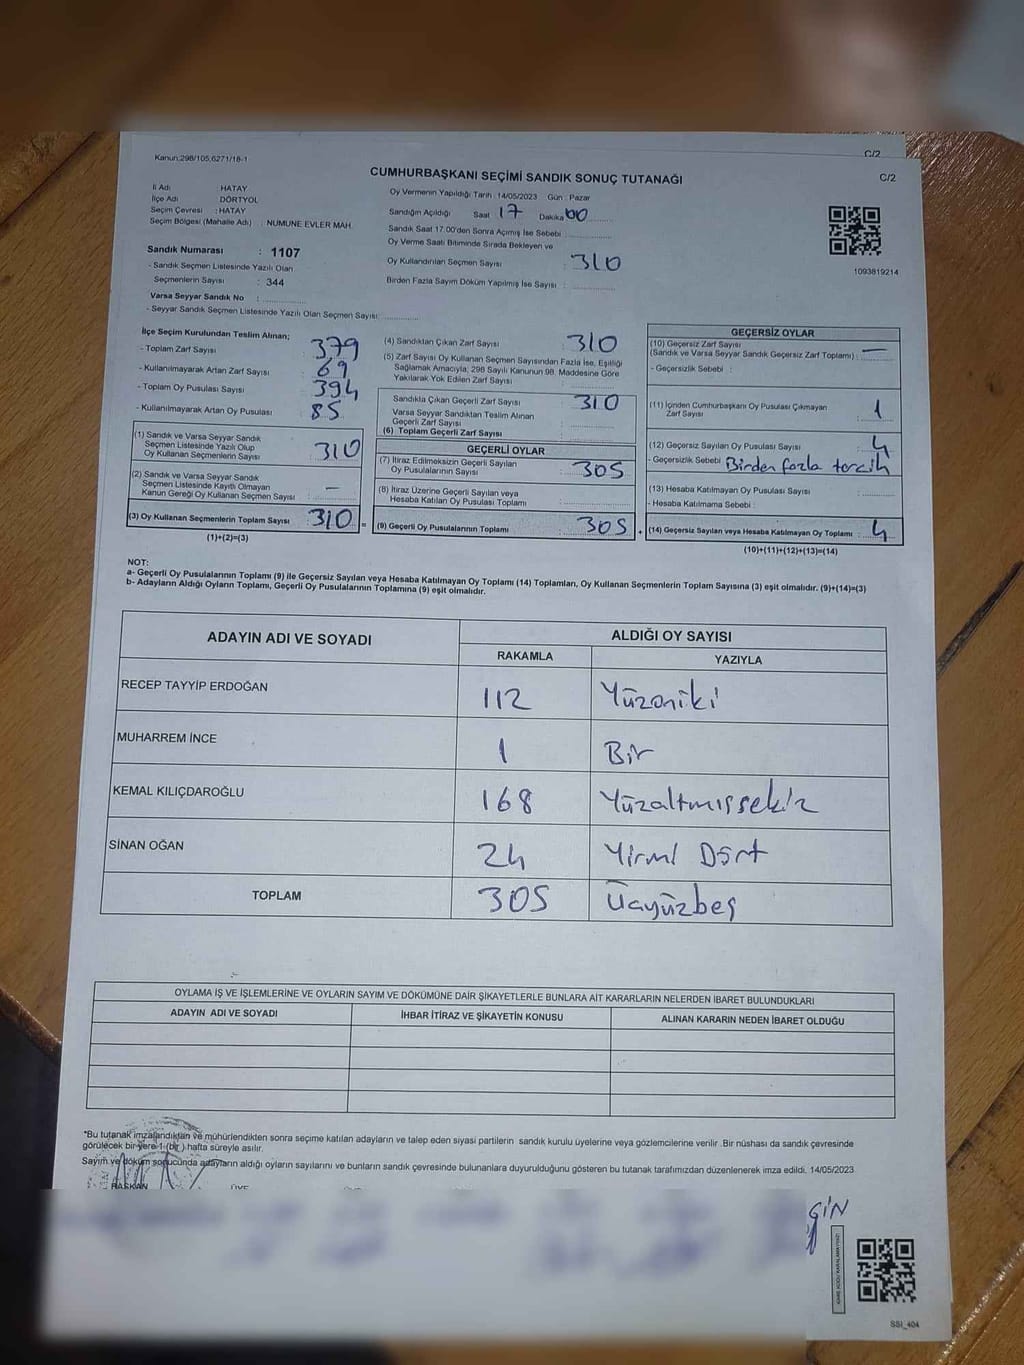 Kanun:298/105,6271/18-1
C/2
C/2
CUMHURBAŞKANI SEÇİMİ SANDIK SONUÇ TUTANAĞI
İl Adı HATAY
İlçe Adı DÖRTYOL
Seçim Çevresi : HATAY
Seçim Bölgesi (Mahalle Adı) : NUMUNE EVLER MAH.
Sandık Numarası : 1107
- Sandık Seçmen Listesinde Yazılı Olan
Seçmenlerin Sayısı : 344
Varsa Seyyar Sandık No :
- Seyyar Sandık Seçmen Listesinde Yazılı Olan Seçmen Sayısı:
Oy Vermenin Yapıldığı Tarih : 14/05/2023 Gün : Pazar
Sandığın Açıldığı Saat 17 Dakika 00
Sandık Saat 17.00'den Sonra Açılmış İse Sebebi
Oy Verme Saati Bitiminde Sırada Bekleyen ve
Oy Kullandırılan Seçmen Sayısı : 310
Birden Fazla Sayım Döküm Yapılmış İse Sayısı :
1093819214
İlçe Seçim Kurulundan Teslim Alınan;
- Toplam Zarf Sayısı 379
- Kullanılmayarak Artan Zarf Sayısı 69
- Toplam Oy Pusulası Sayısı 394
- Kullanılmayarak Artan Oy Pusulası 85
(1) Sandık ve Varsa Seyyar Sandık
Seçmen Listesinde Yazılı Olup
Oy Kullanan Seçmenlerin Sayısı : 310
(2) Sandık ve Varsa Seyyar Sandık
Seçmen Listesinde Kayıtlı Olmayan
Kanun Gereği Oy Kullanan Seçmen Sayısı : —
(3) Oy Kullanan Seçmenlerin Toplam Sayısı : 310 =
(1)+(2)=(3)
(4) Sandıktan Çıkan Zarf Sayısı : 310
(5) Zarf Sayısı Oy Kullanan Seçmen Sayısından Fazla İse, Eşitliği
Sağlamak Amacıyla, 298 Sayılı Kanunun 98. Maddesine Göre
Yakılarak Yok Edilen Zarf Sayısı :
Sandıkta Çıkan Geçerli Zarf Sayısı : 310
Varsa Seyyar Sandıktan Teslim Alınan
Geçerli Zarf Sayısı :
(6) Toplam Geçerli Zarf Sayısı :
GEÇERLİ OYLAR
(7) İtiraz Edilmeksizin Geçerli Sayılan
Oy Pusulalarının Sayısı : 305
(8) İtiraz Üzerine Geçerli Sayılan veya
Hesaba Katılan Oy Pusulası Toplamı :
(9) Geçerli Oy Pusulalarının Toplamı : 305 +
GEÇERSİZ OYLAR
(10) Geçersiz Zarf Sayısı
(Sandık ve Varsa Seyyar Sandık Geçersiz Zarf Toplamı) : —
- Geçersizlik Sebebi :
(11) İçinden Cumhurbaşkanı Oy Pusulası Çıkmayan
Zarf Sayısı : 1
(12) Geçersiz Sayılan Oy Pusulası Sayısı : 4
- Geçersizlik Sebebi : Birden fazla tercih
(13) Hesaba Katılmayan Oy Pusulası Sayısı :
- Hesaba Katılmama Sebebi :
(14) Geçersiz Sayılan veya Hesaba Katılmayan Oy Toplamı : 4
(10)+(11)+(12)+(13)=(14)
NOT:
a- Geçerli Oy Pusulalarının Toplamı (9) ile Geçersiz Sayılan veya Hesaba Katılmayan Oy Toplamı (14) Toplamları, Oy Kullanan Seçmenlerin Toplam Sayısına (3) eşit olmalıdır. (9)+(14)=(3)
b- Adayların Aldığı Oyların Toplamı, Geçerli Oy Pusulalarının Toplamına (9) eşit olmalıdır.
ADAYIN ADI VE SOYADI ALDIĞI OY SAYISI
RAKAMLA YAZIYLA
RECEP TAYYİP ERDOĞAN 112 Yüzoniki
MUHARREM İNCE 1 Bir
KEMAL KILIÇDAROĞLU 168 Yüzaltmışsekiz
SİNAN OĞAN 24 Yirmi Dört
TOPLAM 305 Üçyüzbeş
OYLAMA İŞ VE İŞLEMLERİNE VE OYLARIN SAYIM VE DÖKÜMÜNE DAİR ŞİKAYETLERLE BUNLARA AİT KARARLARIN NELERDEN İBARET BULUNDUKLARI
ADAYIN ADI VE SOYADI İHBAR İTİRAZ VE ŞİKAYETİN KONUSU ALINAN KARARIN NEDEN İBARET OLDUĞU
*Bu tutanak imzalandıktan ve mühürlendikten sonra seçime katılan adayların ve talep eden siyasi partilerin sandık kurulu üyelerine veya gözlemcilerine verilir .Bir nüshası da sandık çevresinde
görülecek bir yere 1 (bir ) hafta süreyle asılır.
Sayım ve döküm sonucunda adayların aldığı oyların sayılarını ve bunların sandık çevresinde bulunanlara duyurulduğunu gösteren bu tutanak tarafımızdan düzenlenerek imza edildi. 14/05/2023
BAŞKAN ÜYE
GİN
SSI_404